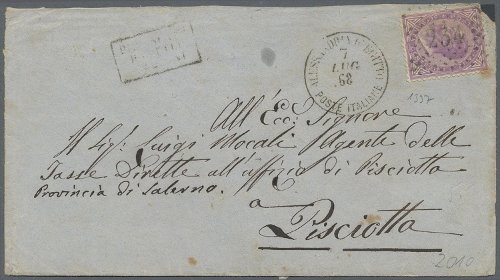 ALESSANDRIA D'EGITTO
7
LUG
68
POSTE ITALIANE
234
1397
All' Ecc: Signore
Il Sig: Luigi Mocali Agente delle
Tasse Dirette all' uffizio di Pisciotta
Provincia di Salerno.
a
Pisciotta
2010